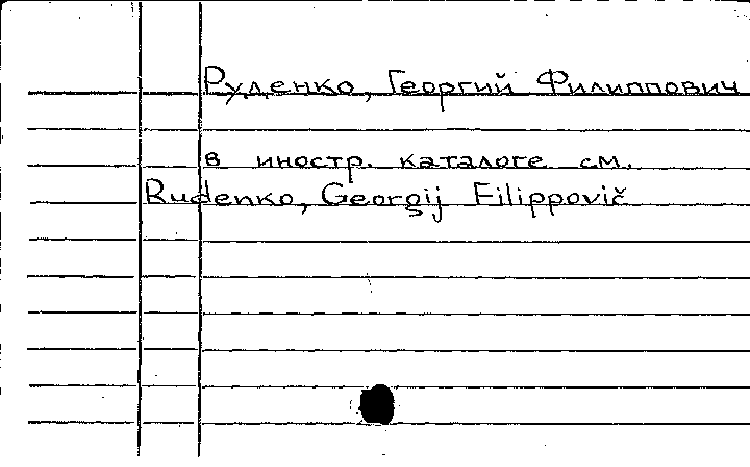 Руденко, Георгий Филиппович
в иностр. каталоге см.
Rudenko, Georgij Filippovič